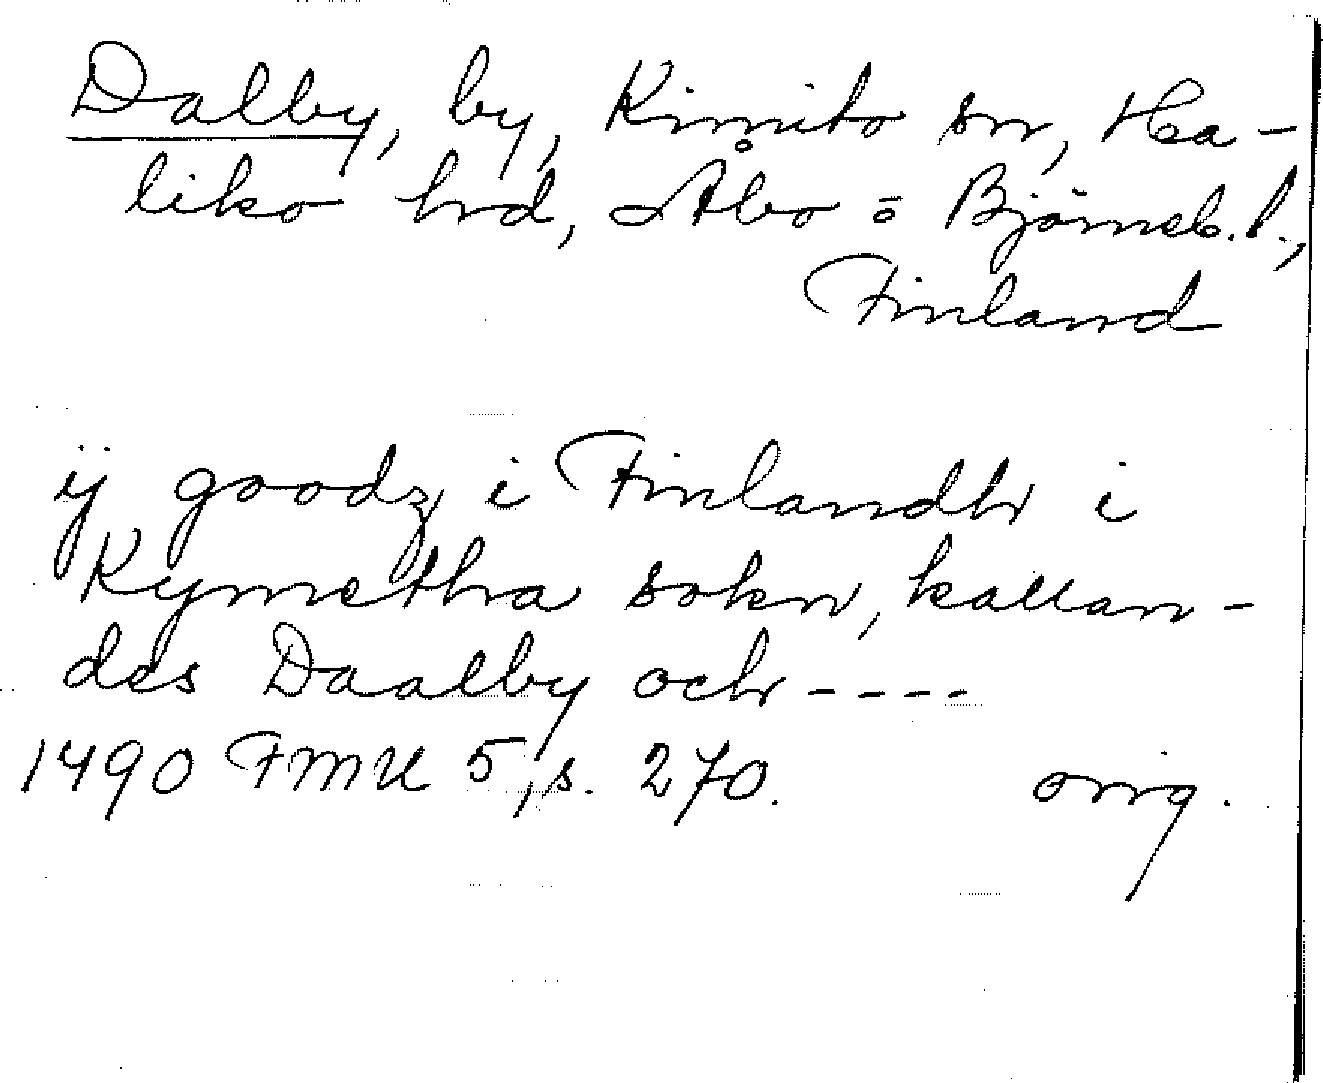 Dalby, by, Kimito sn, Ha-
liko hrd, Åbo o Björneb. l.,
Finland
ij goodz i Finlandh i
Kymethra sokn, kallan-
des Daalby och ----
1490 FMU 5, s. 270. orig.